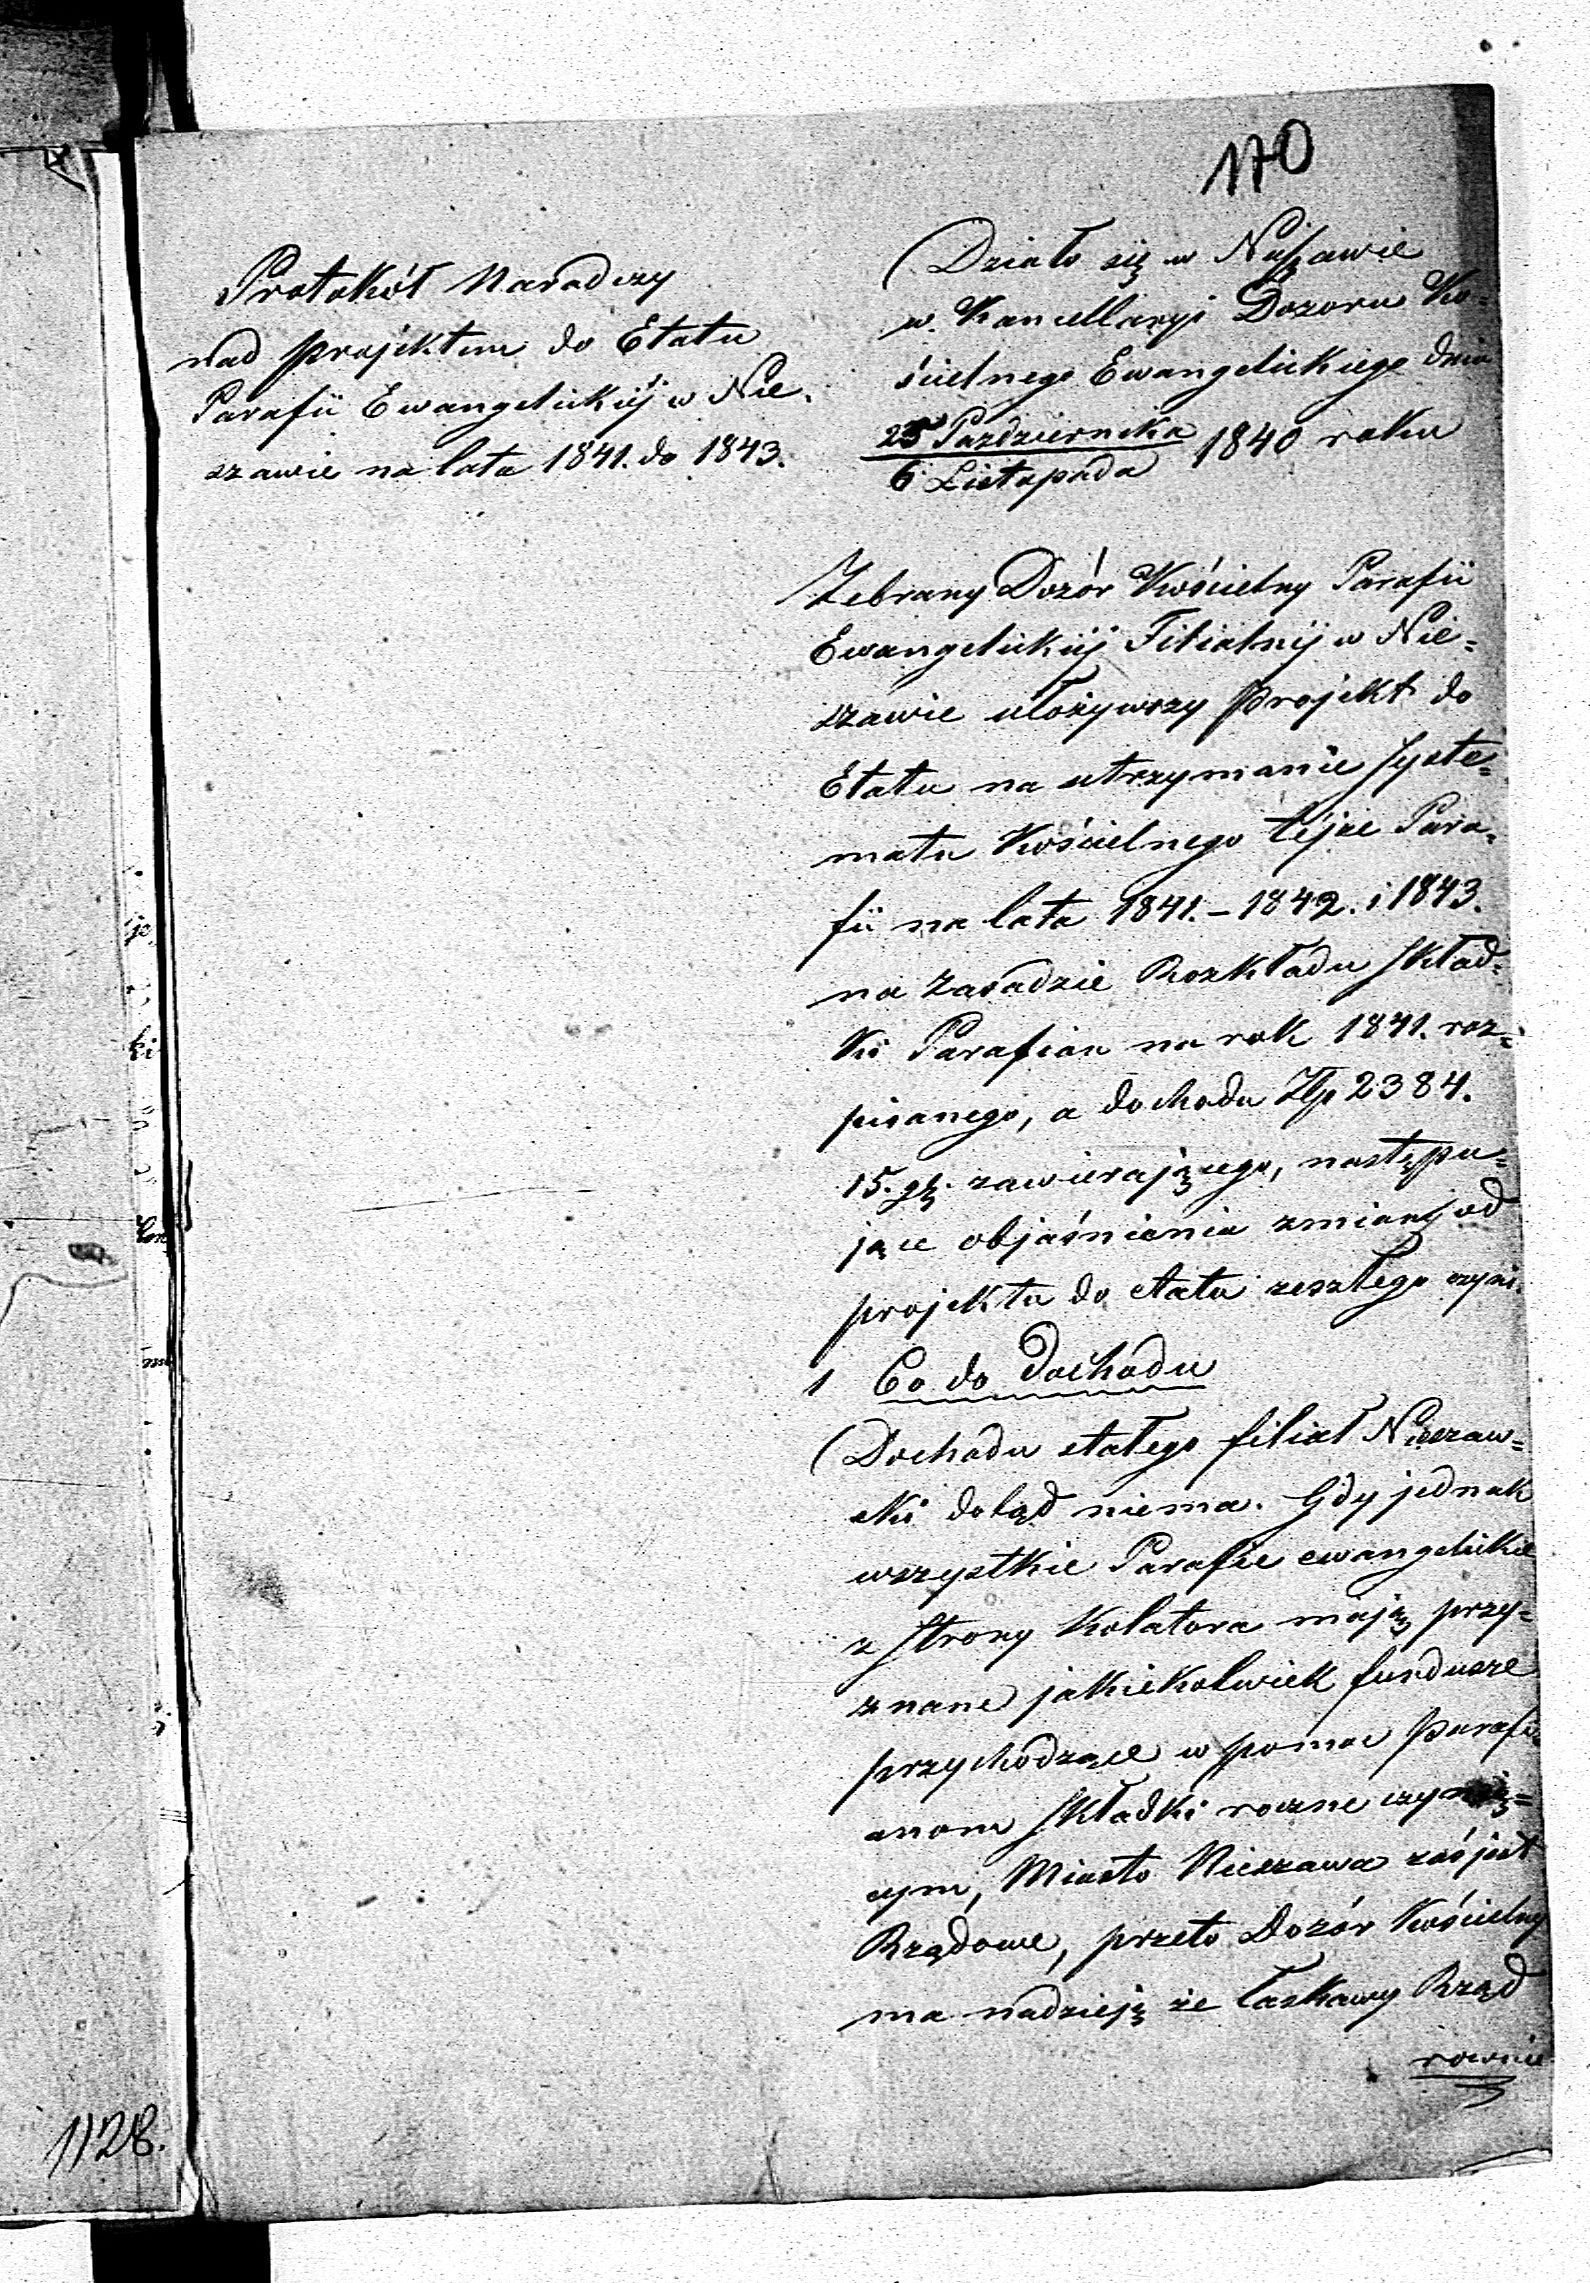 170
Protokół Naradczy
nad projektem do Etatu
Parafii Ewangelickiéj w Nie-
szawie na lata 1841. do 1843.
Działo się w Nieszawie
w Kancellaryi Dozoru Ko-
ścielnego Ewangelickiego dnia
25 Października
6 Listopada 1840 roku
Zebrany Dozór Kościelny Parafii
Ewangelickiéj Filialnéj w Nie=
szawie ułożywszy projekt do
Etatu na utrzymanie Syste=
matu Kościelnego téjże Para=
fii na lata 1841. - 1842. i 1843.
na zasadzie Rozkładu Skład=
ki Parafian na rok 1841. roz=
pisanego, a dochodu Złp 2384.
15. gr. zawierającego, następu=
jące objaśnienia zmiany od
projektu do etatu zeszłego czyni.
1 Co do Dochodu
Dochodu stałego filiał Nieszaw=
ski dotąd niema. Gdy jednak
wszystkie Parafie ewangelickie
z Strony Kolatora mają przy=
znane jakiekolwiek fundusze
przychodzące w pomoc parafi
anom Składki roczne czynią=
cym, Miasto Nieszawa zaś jest
Rządowe, przeto Dozór Kościelny
ma nadzieję że łaskawy Rząd
rownie
1128.